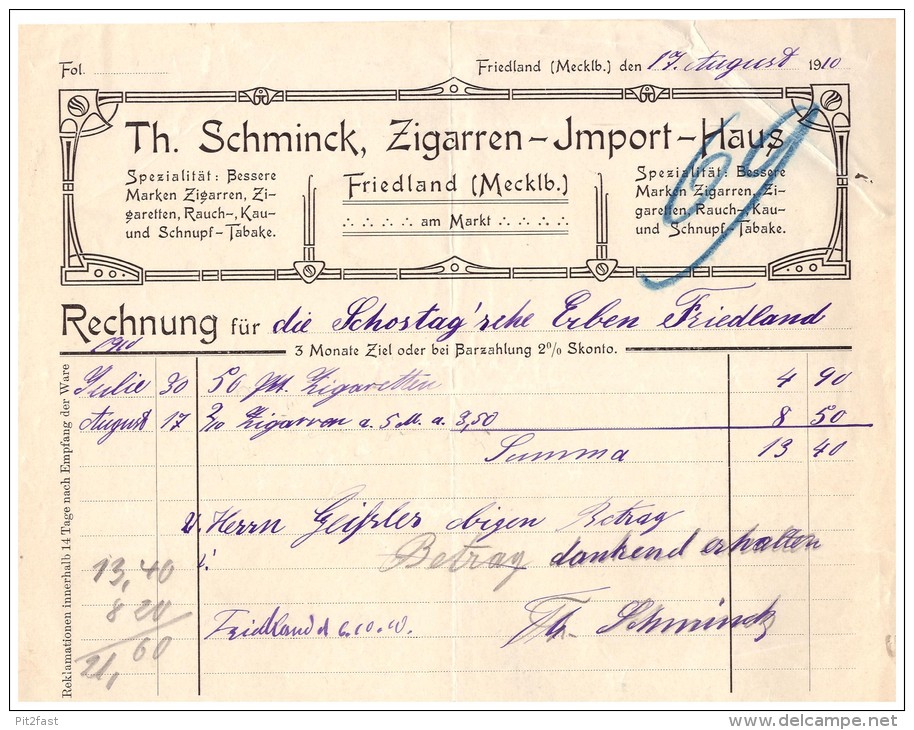 Fol.
Friedland (Mecklb.) den 17. August 1910
69
Th. Schminck, Zigarren-Jmport-Haus
Spezialität: Bessere
Marken Zigarren, Zi-
garetten, Rauch-, Kau-
und Schnupf-Tabake.
Friedland (Mecklb.)
am Markt
Spezialität: Bessere
Marken Zigarren, Zi-
garetten, Rauch-, Kau-
und Schnupf-Tabake.
Rechnung für die Schostag'sche Erben Friedland
1910
3 Monate Ziel oder bei Barzahlung 2% Skonto.
Reklamationen innerhalb 14 Tage nach Empfang der Ware
Julie 30 50 Zigaretten 4 90
August 17 2/10 Zigarren a. 5 M. a. 3,50 8 50
Summa 13 40
Herrn Geißler obigen Betrag
Betrag dankend erhalten
13,40
8 20
21,60
Friedland d 6.10.10.
Th. Schminck
Pit2fast
www.delcampe.net